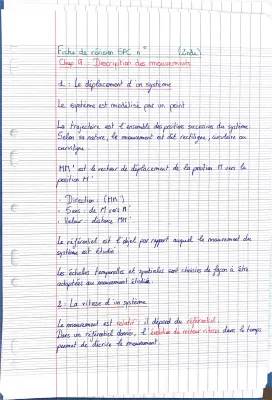 Fiche de révision SPC n° (2nde)
Chap 9 : Description des mouvements
1 : Le déplacement d'un système
Le système est modélisé par un point
La trajectoire est l'ensemble des positions successives du système.
Selon sa nature, le mouvement est dit rectiligne, circulaire ou
curviligne
MM' est le vecteur de déplacement de la position M vers la
position M'
- Direction : (MM')
- Sens : de M vers M'
- Valeur : distance MM'
Le référentiel est l'objet par rapport auquel le mouvement du
système est étudié
Les échelles temporelles et spatiales sont choisies de façon à être
adaptées au mouvement étudié.
2 : La vitesse d'un système
Le mouvement est relatif : il dépend du référentiel.
Dans un référentiel donné, l'évolution du vecteur vitesse dans le temps
permet de décrire le mouvement.